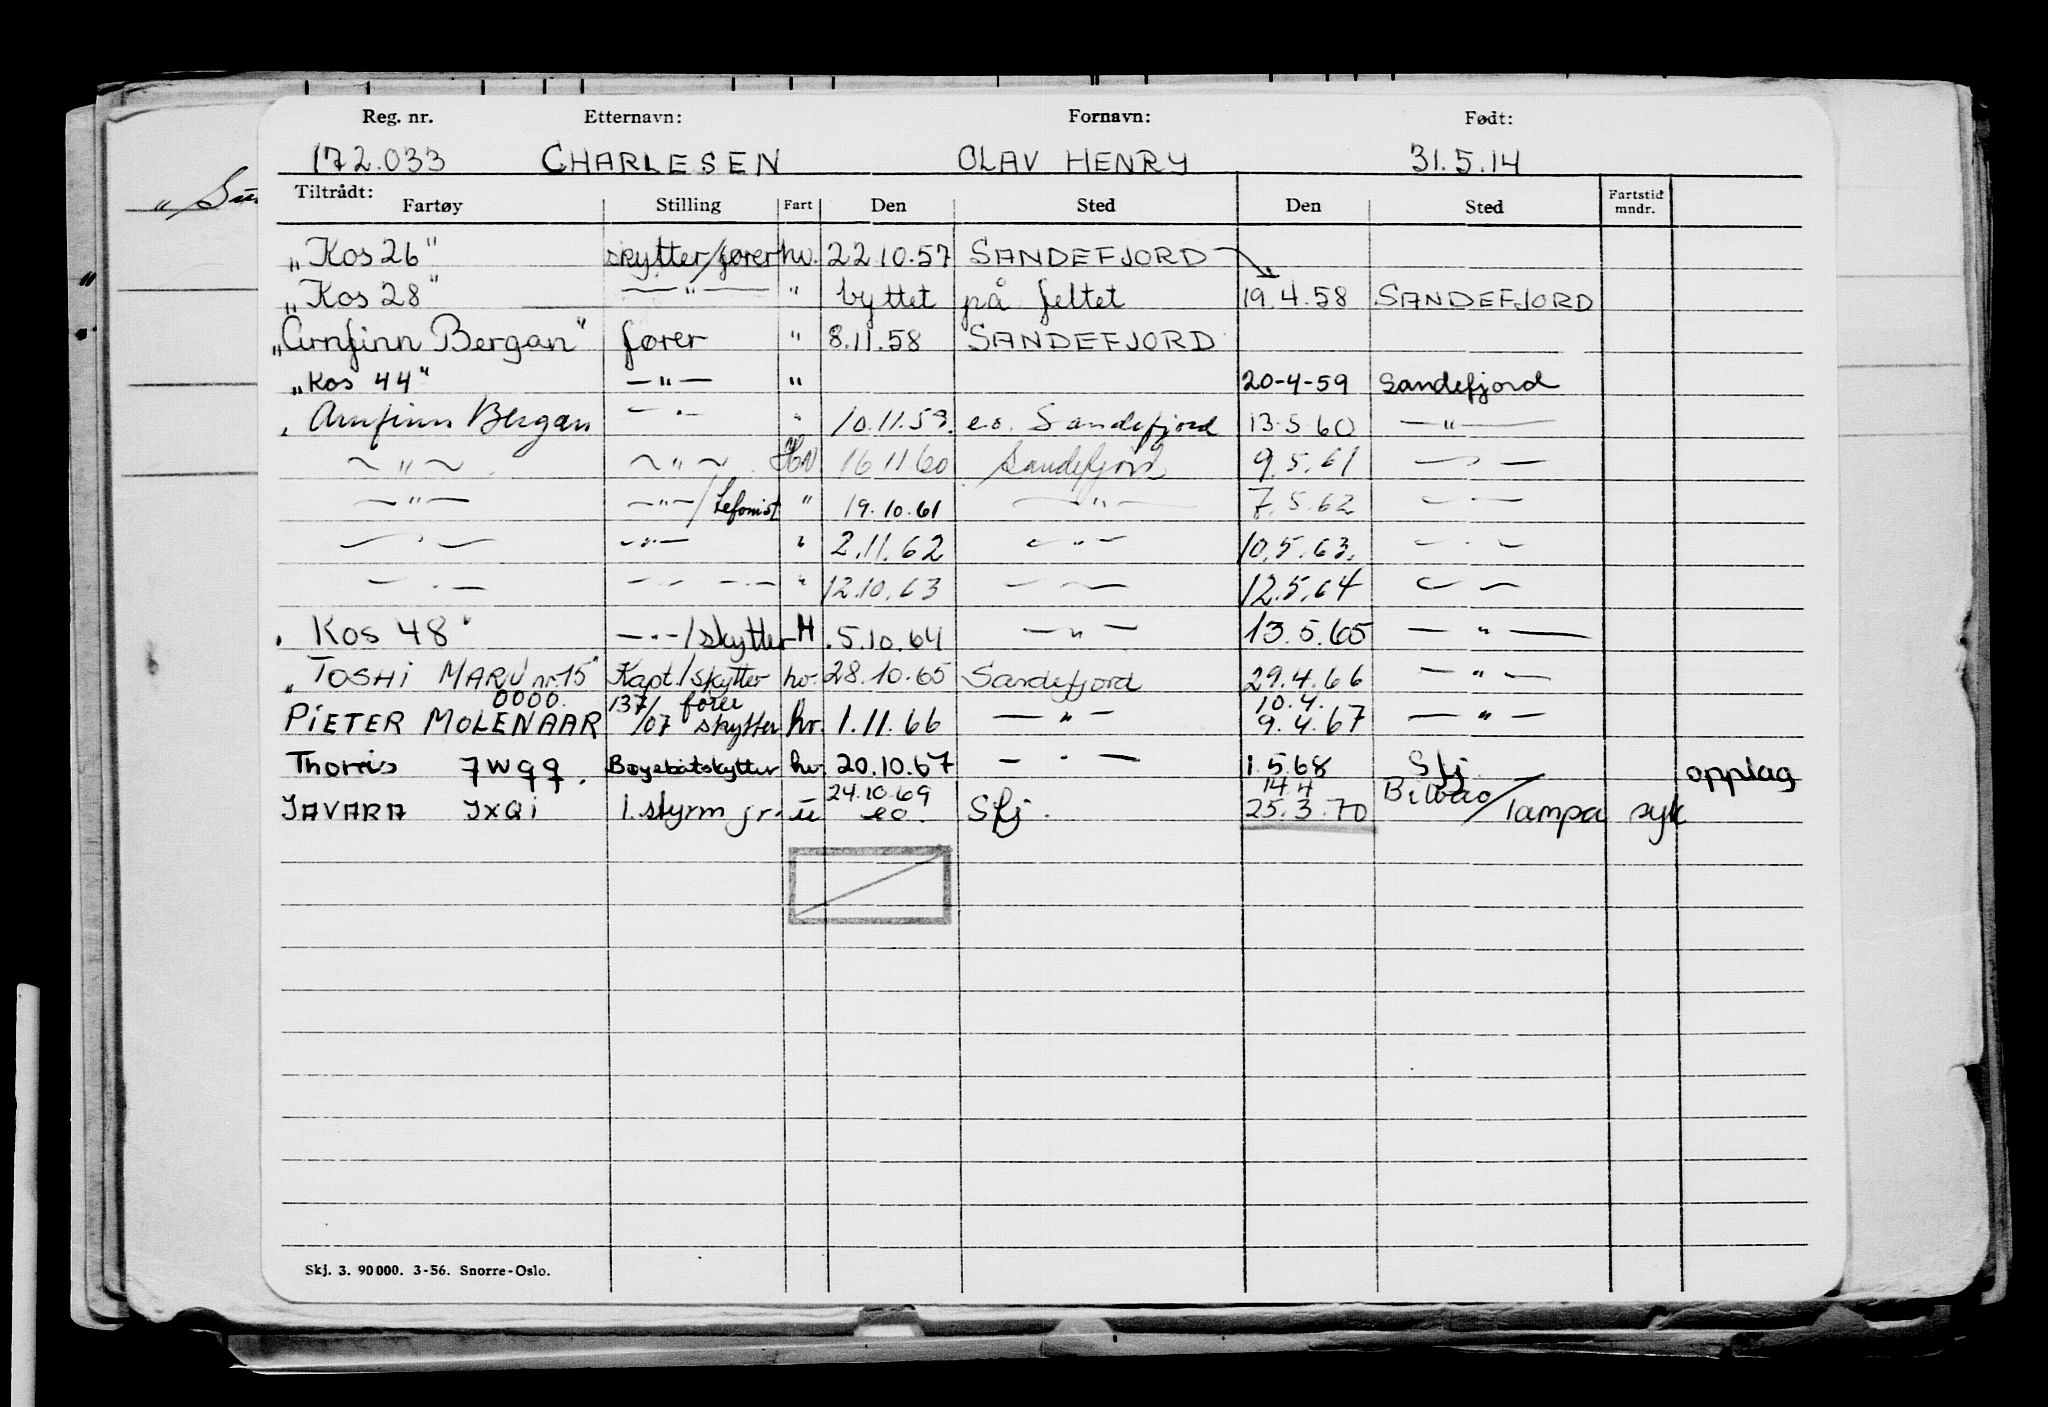 Reg. nr. Etternavn: Fornavn: Født:
172.033 CHARLESEN OLAV HENRY 31.5.14
Tiltrådt:
Fartøy Stilling Fart Den Sted Den Sted Fartstid mndr.
„Kos 26" skytter/fører hv. 22.10.57 SANDEFJORD
„Kos 28" —"— " byttet på feltet 19.4.58 SANDEFJORD
„Arnfinn Bergan" fører " 8.11.58 SANDEFJORD
„Kos 44" —"— " 20-4-59 Sandefjord
„Arnfinn Bergan —"— " 10.11.59. e.o. Sandefjord 13.5.60 —"—
—"— —"— Hv 16 11 60 Sandefjord 9.5.61 —"—
—"— —"—/Lefonist " 19.10.61 —"— 7.5.62 —"—
—"— —"— " 2.11.62 —"— 10.5.63. —"—
—"— —"— —"— " 12.10.63 —"— 12.5.64 —"—
„Kos 48" —"—/skytter H .5.10.64 —"— 13.5.65 —"—
„TOSHI MARU nr. 15" Kapt/skytter hv. 28.10.65 Sandefjord 29.4.66 —"—
0000. 137/ fører 10.4.
PIETER MOLENAAR /07 skytter hv. 1.11.66 —"— 9.4.67 —"—
Thorris JWQQ. Bøyebåtskytter hv. 20.10.67 —"— 1.5.68 Sfj. opplag
24.10.69 14.4 Bilbao/
JAVARA JXQI 1. styrm jr. u eo. Sfj. 25.3.70 Tampa syk
Skj. 3. 90000. 3-56. Snorre-Oslo.